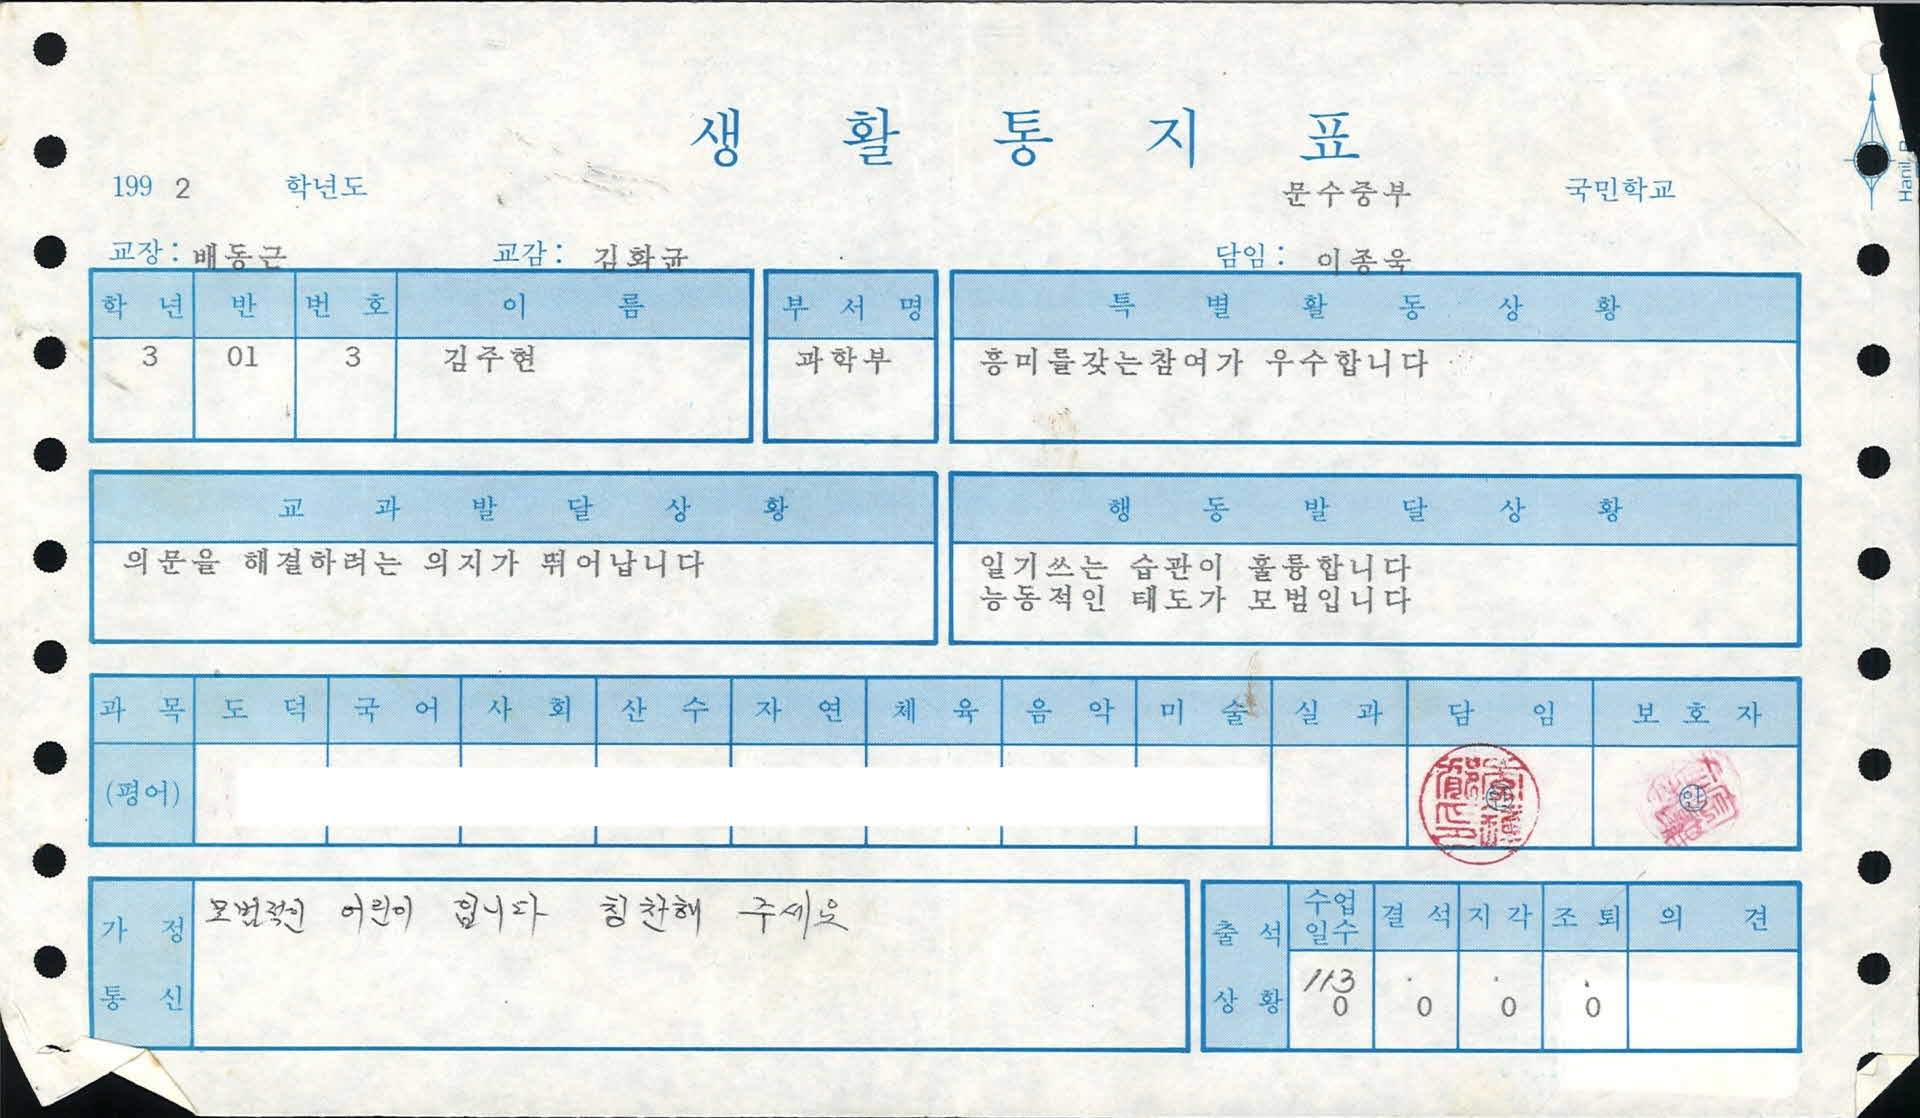 생활통지표
199 2 학년도 문수중부 국민학교
교장 : 배동근 교감 : 김화균 담임 : 이종욱
학년 반 번호 이름 부서명 특별활동상황
3 01 3 김주현 과학부 흥미를갖는참여가 우수합니다
교과발달상황 행동발달상황
의문을 해결하려는 의지가 뛰어납니다 일기쓰는 습관이 훌륭합니다
능동적인 태도가 모범입니다
과목 도덕 국어 사회 산수 자연 체육 음악 미술 실과 담임 보호자
(평어) 인
가정통신 모범적인 어린이 입니다 칭찬해 주세요
출석상황 수업일수 결석 지각 조퇴 의견
113
0 0 0 0